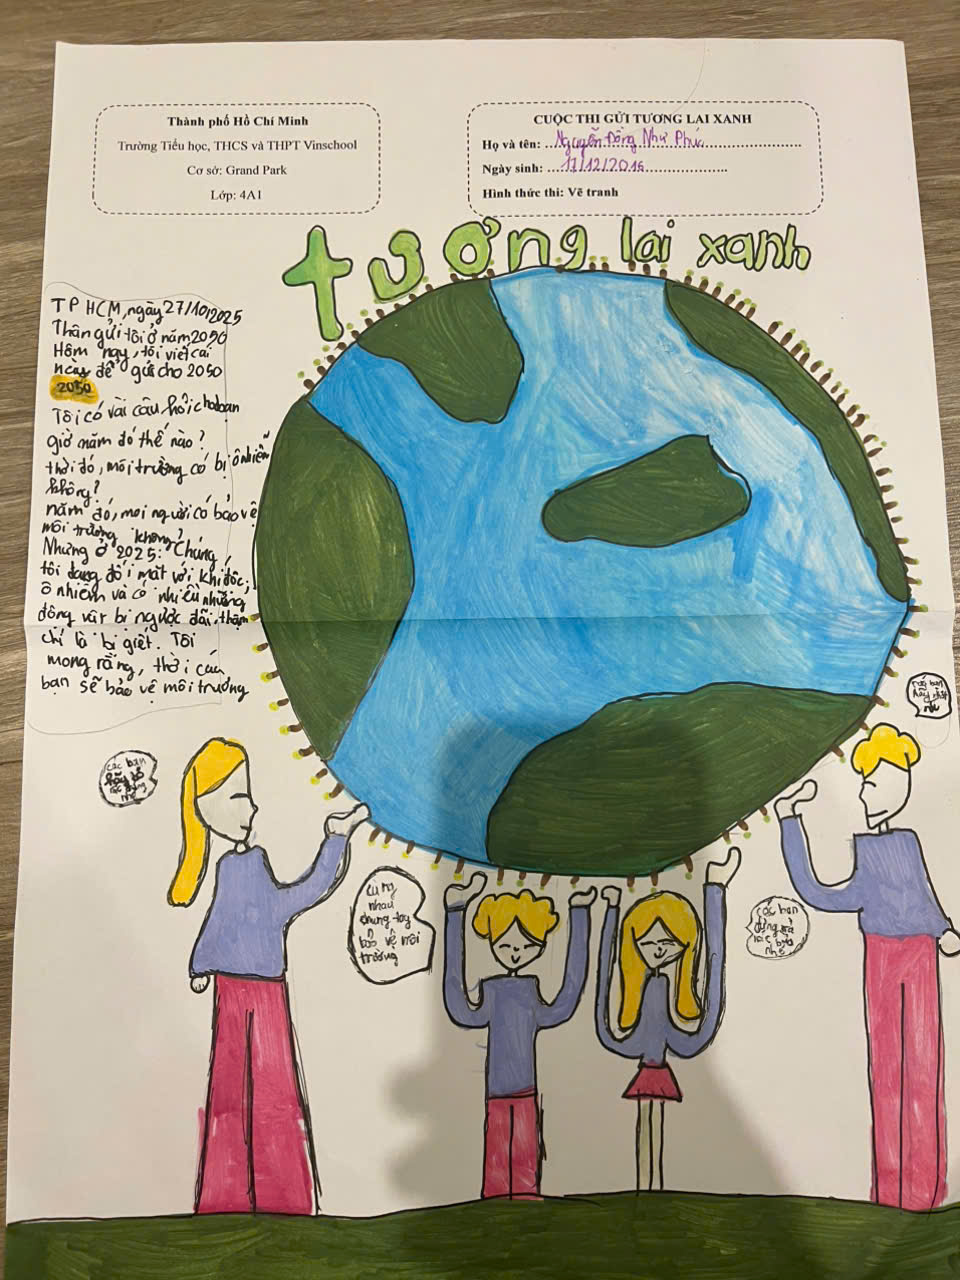 Thành phố Hồ Chí Minh
Trường Tiểu học, THCS và THPT Vinschool
Cơ sở: Grand Park
Lớp: 4A1
CUỘC THI GỬI TƯƠNG LAI XANH
Họ và tên: Nguyễn Đông Như Phúc
Ngày sinh: 17/12/2016
Hình thức thi: Vẽ tranh
tương lai xanh
TP HCM, ngày 27/10/2025
Thân gửi tôi ở năm 2050
Hôm nay, tôi viết cái
này để gửi cho 2050
2050
Tôi có vài câu hỏi cho bạn
giờ năm đó thế nào?
thời đó, môi trường có bị ô nhiễm
không?
năm đó, mọi người có bảo vệ
môi trường không?
Nhưng ở 2025: Chúng
tôi đang đối mặt với khí độc,
ô nhiễm và có nhiều những
động vật bị ngược đãi, thậm
chí là bị giết. Tôi
mong rằng, thời của
bạn sẽ bảo vệ môi trường
các bạn
hãy bỏ
rác đúng
các bạn
hãy
nhé
cùng
nhau
chung tay
bảo vệ môi
trường
các bạn
đừng xả
rác bừa
nhé